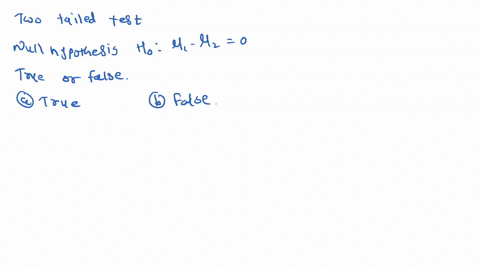 Two tailed test
Null hypothesis H₀: μ₁ - μ₂ = 0
True or false.
ⓐ True ⓑ False.